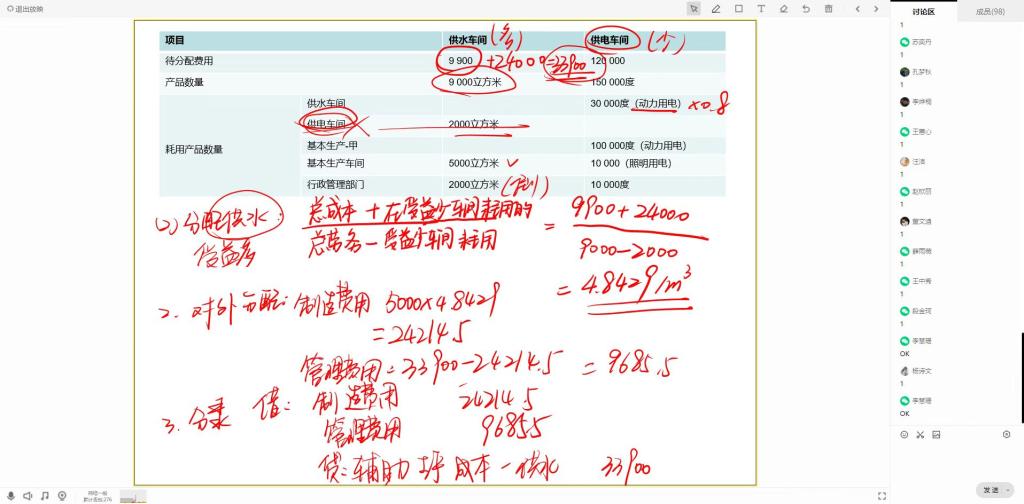 退出放映
讨论区
成员(98)
项目 供水车间 (多) 供电车间 (少)
待分配费用 9 900 +24000=33900 120 000
产品数量 9 000立方米 150 000度
耗用产品数量
供水车间 30 000度（动力用电） ×0.8
供电车间 2000立方米
基本生产-甲 100 000度（动力用电）
基本生产车间 5000立方米 ✓ 10 000（照明用电）
行政管理部门 2000立方米 10 000度
(2) 分配供水:
受益多
总成本 + 在受益少车间耗用的
总劳务 - 受益少车间耗用
= 9900+24000
9000-2000
= 4.8429/m³
2. 对外分配: 制造费用 5000×4.8429
=24214.5
管理费用=33900-24214.5 = 9685.5
3. 分录 借: 制造费用 24214.5
管理费用 9685.5
贷: 辅助 成本-供水 33900
1
苏奕丹
1
孔梦秋
1
1
1
汪洁
1
赵欣丽
1
1
薛雨薇
1
王中秀
1
段金珂
1
李慧珊
OK
杨诗文
1
李慧珊
OK
发送